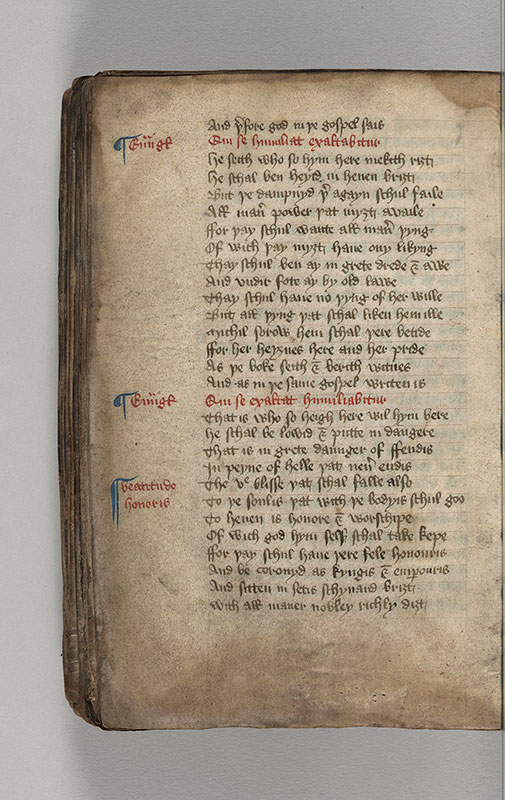 And þ'fore god in þe gospel sais
Euu̅gł Qui se humiliat exaltabitur
He seith who so hym here mekith riȝt
He schal ben heyd in heuen briȝt
But þe dampnyd þ' agayn schul faile
Ałł man' power þat myȝt availe
Ffor þay schul wante ałł man' þyng
Of wich þay myȝt haue ony likyng
Thay schul ben ay in grete drede & awe
And vndir fote ay by old lawe
Thay schul haue no þyng of her wille
But ałł þyng þat schal liken hem ille
Michil sorow hem schal þere betide
Ffor her heyȝnes here and her pride
As þe boke seith & berith witnes
And as in þe same gospel writen is
Euu̅gł Qui se exaltat humiliabitur
That is who so heigh here wil hym bere
He schal be lowid & putte in daungere
That is in grete daunger of ffendis
In peyne of helle þat neu' endis
beatitude honoris The vᵉ blisse þat schal falle also
To þe soulis þat with þe bodyis schul goo
To heuen is honore & worschipe
Of wich god hym self schal take kepe
Ffor þay schul haue þere fele honouris
And be coronyd as kyngis & emp̱ouris
And sitten in setis schynand briȝt
With ałł maner nobley richly diȝt